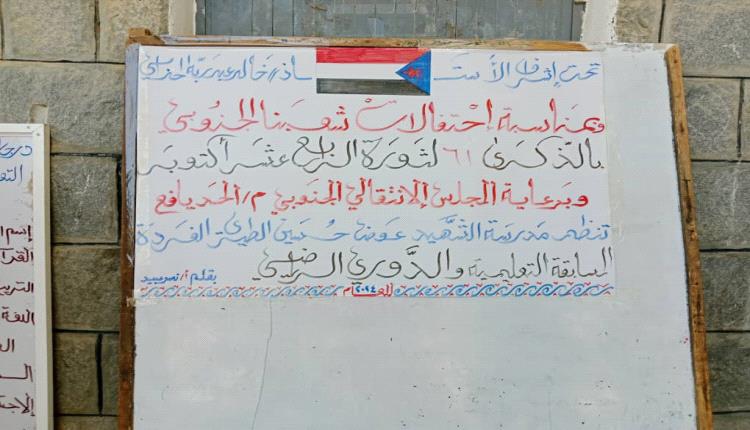 تحت إشراف الأستاذ/ خالد عبدربه الحنشلي
وبمناسبة إحتفالات شعبنا الجنوبي
بالذكرى ٦١ لثورة الرابع عشر أكتوبر
وبرعاية المجلس الإنتقالي الجنوبي م/ الحد يافع
تنظم مدرسة الشهيد عوض حسين الطيري الفردة
المسابقة التعليمية والدوري الرياضي
بقلم أ/
للعام ٢٠٢٤م
إسم
القرآ
التربي
اللغة
الإجت